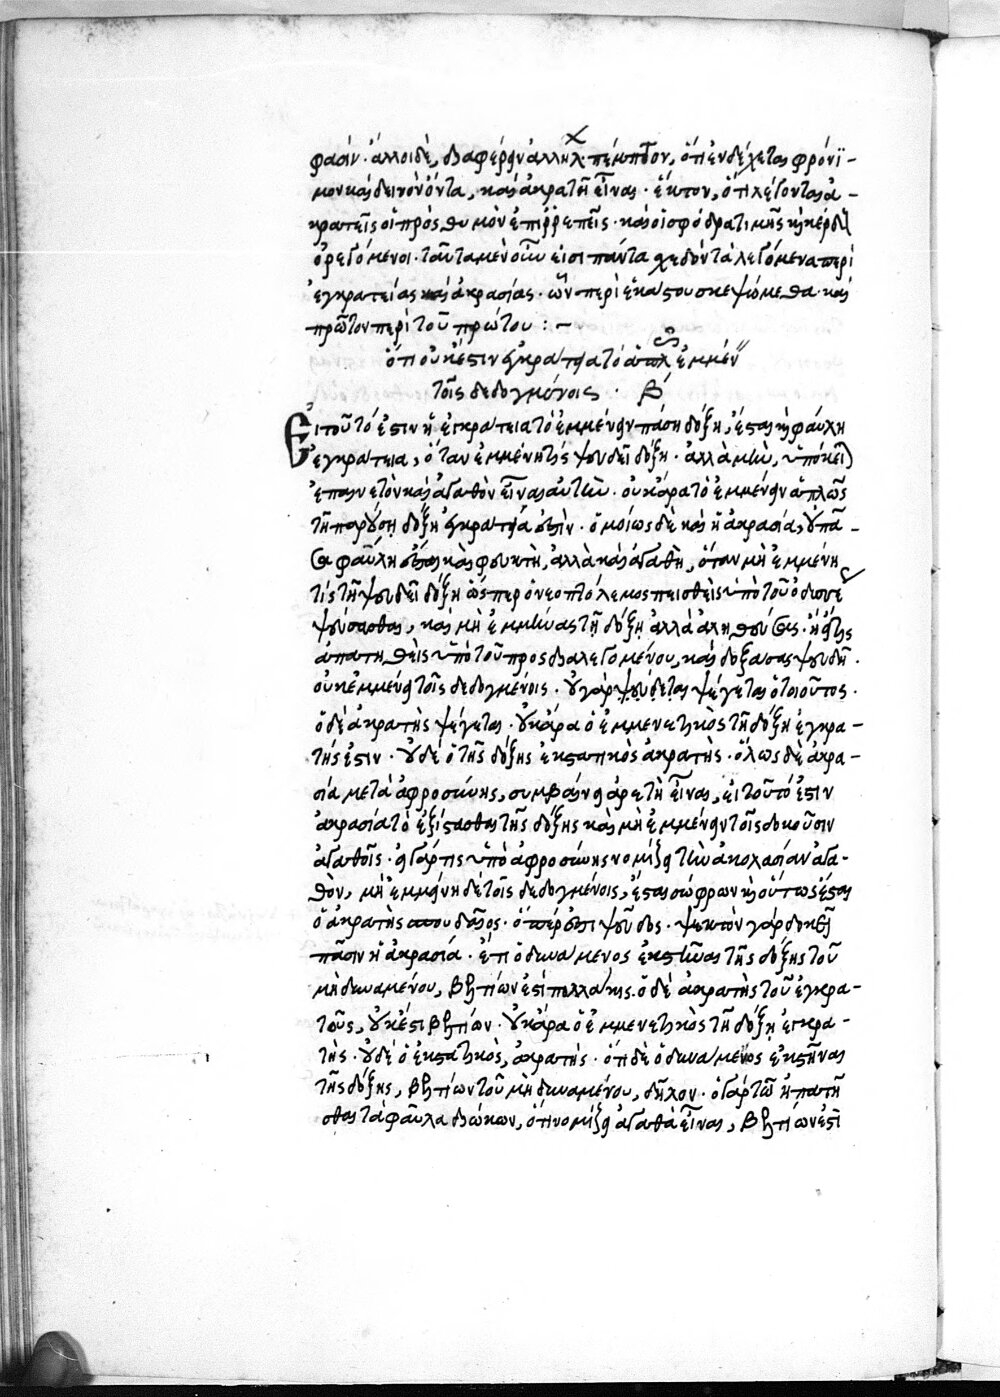 φασίν· ἄλλοι δὲ, διαφέρειν ἀλλήλων· πέμπτον, ὅτι ἐνδέχεται φρόνι-
μον καὶ δεινὸν ὄντα, καὶ ἀκρατῆ εἶναι· ἕκτον, ὅτι λέγονται ἀ-
κρατεῖς οἱ πρὸς θυμὸν ἐπιῤῥεπεῖς· καὶ οἱ σφόδρα τιμῆς καὶ κέρδους
ὀρεγόμενοι· ταῦτα μὲν οὖν εἰσι πάντα σχεδὸν τὰ λεγόμενα περὶ
ἐγκρατείας καὶ ἀκρασίας· ὧν περὶ ἑκάστου σκεψώμεθα· καὶ
πρῶτον περὶ τοῦ πρώτου :–
ὅτι οὐκ ἔστιν ἐγκράτεια τὸ ἁπλῶς ἐμμέν
τοῖς δεδογμένοις· β´
Εἰ τοῦτό ἐστιν ἡ ἐγκράτεια τὸ ἐμμένειν πάσῃ δόξῃ, ἔσται καὶ φαύλη
ἐγκράτεια, ὅταν ἐμμένῃ τις ψευδεῖ δόξῃ· ἀλλὰ μὴν, ὑπόκει
ἐπαινετὸν καὶ ἀγαθὸν εἶναι αὐτήν· οὐκ ἄρα τὸ ἐμμένειν ἁπλῶς
τῇ παρούσῃ δόξῃ ἐγκράτειά ἐστιν· ὁμοίως δὲ καὶ ἡ ἀκρασία, οὐ πᾶ-
σα φαύλη ἔσται καὶ φευκτὴ, ἀλλὰ καὶ ἀγαθὴ, ὅταν μὴ ἐμμένῃ
τίς τῇ ψευδεῖ δόξῃ ὥσπερ ὁ νεοπτόλεμος πεισθεὶς ὑπὸ τοῦ ὀδυσσέως
ψεύσασθαι, καὶ μὴ ἐμμείνας τῇ δόξῃ ἀλλὰ ἀληθεύσας· ἢ εἴ τις
ἀπατηθεὶς ὑπὸ τοῦ προσδιαλεγομένου, καὶ δοξάσας ψευδῆ·
οὐκ ἐμμένει τοῖς δεδογμένοις· οὐ γὰρ ψεύδεται ψέγεται ὁ τοιοῦτος·
ὁ δὲ ἀκρατὴς ψέγεται· οὐκ ἄρα ὁ ἐμμενετικὸς τῇ δόξῃ ἐγκρα-
τής ἐστιν· οὐδὲ ὁ τῆς δόξης ἐκστατικὸς ἀκρατής· ὅλως δὲ ἀκρα-
σία μετὰ ἀφροσύνης, συμβαίνει ἀρετὴ εἶναι, εἰ τοῦτό ἐστιν
ἀκρασία τὸ ἐξίστασθαι τῆς δόξης καὶ μὴ ἐμμένειν τοῖς δοκοῦσιν
ἀγαθοῖς· εἰ γάρ τις ὑπὸ ἀφροσύνης νομίζει τὴν ἀκολασίαν ἀγα-
θὸν, μὴ ἐμμένῃ δὲ τοῖς δεδογμένοις, ἔσται σώφρων καὶ οὕτως ἔσται
ὁ ἀκρατὴς σπουδαῖος· ὅπερ ἐστὶ ψεῦδος· ψεκτὸν γὰρ δοκεῖ
πᾶσιν ἡ ἀκρασία· ἔτι ὁ δυνάμενος ἐκστῆναι τῆς δόξης τοῦ
μὴ δυναμένου, βελτίων ἐστὶ πολλάκις. ὁ δὲ ἀκρατὴς τοῦ ἐγκρα-
τοῦς, οὐκ ἔστι βελτίων· οὐκ ἄρα ὁ ἐμμενετικὸς τῇ δόξῃ ἐγκρα-
τής· οὐδὲ ὁ ἐκστατικὸς, ἀκρατής· ὅτι δὲ ὁ δυνάμενος ἐκστῆναι
τῆς δόξης, βελτίων τοῦ μὴ δυναμένου, δῆλον· ὁ γὰρ τῷ ἠπατῆ
σθαι τὰ φαῦλα διώκων, ὅτι νομίζει ἀγαθὰ εἶναι, βελτίων ἐστὶ